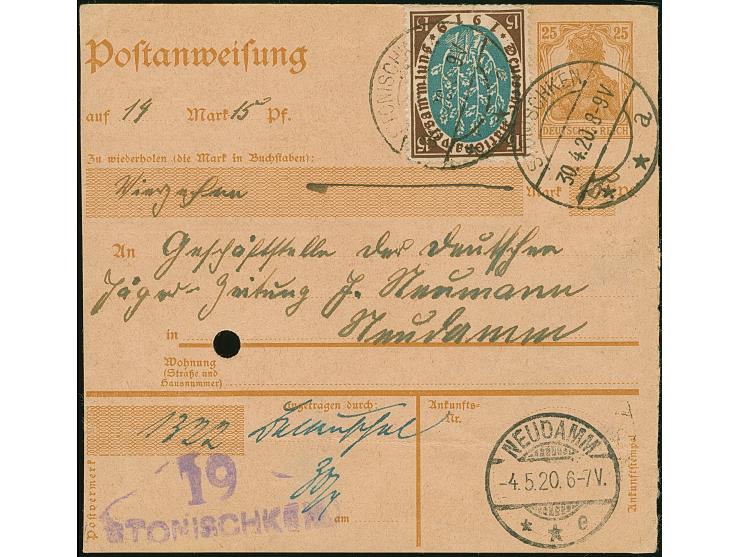 Postanweisung
auf 14 Mark 15 Pf.
Zu wiederholen (die Mark in Buchstaben):
Vierzehn Mark 15 Pf.
An Geschäftsstelle der Deutschen
Jäger-Zeitung J. Neumann
in Neudamm
Wohnung
(Straße und
Hausnummer)
15 1919 15
Deutsche Nationalversammlung
15 15
25 25
DEUTSCHES REICH
STONISCHKEN
30.4.20. 8-9V
* * a
Postvermerk
1322
Eingetragen durch:
am
Ankunfts-
Nr.
Ankunftstempel
19
STONISCHKEN
NEUDAMM
-4.5.20. 6-7V.
* * e